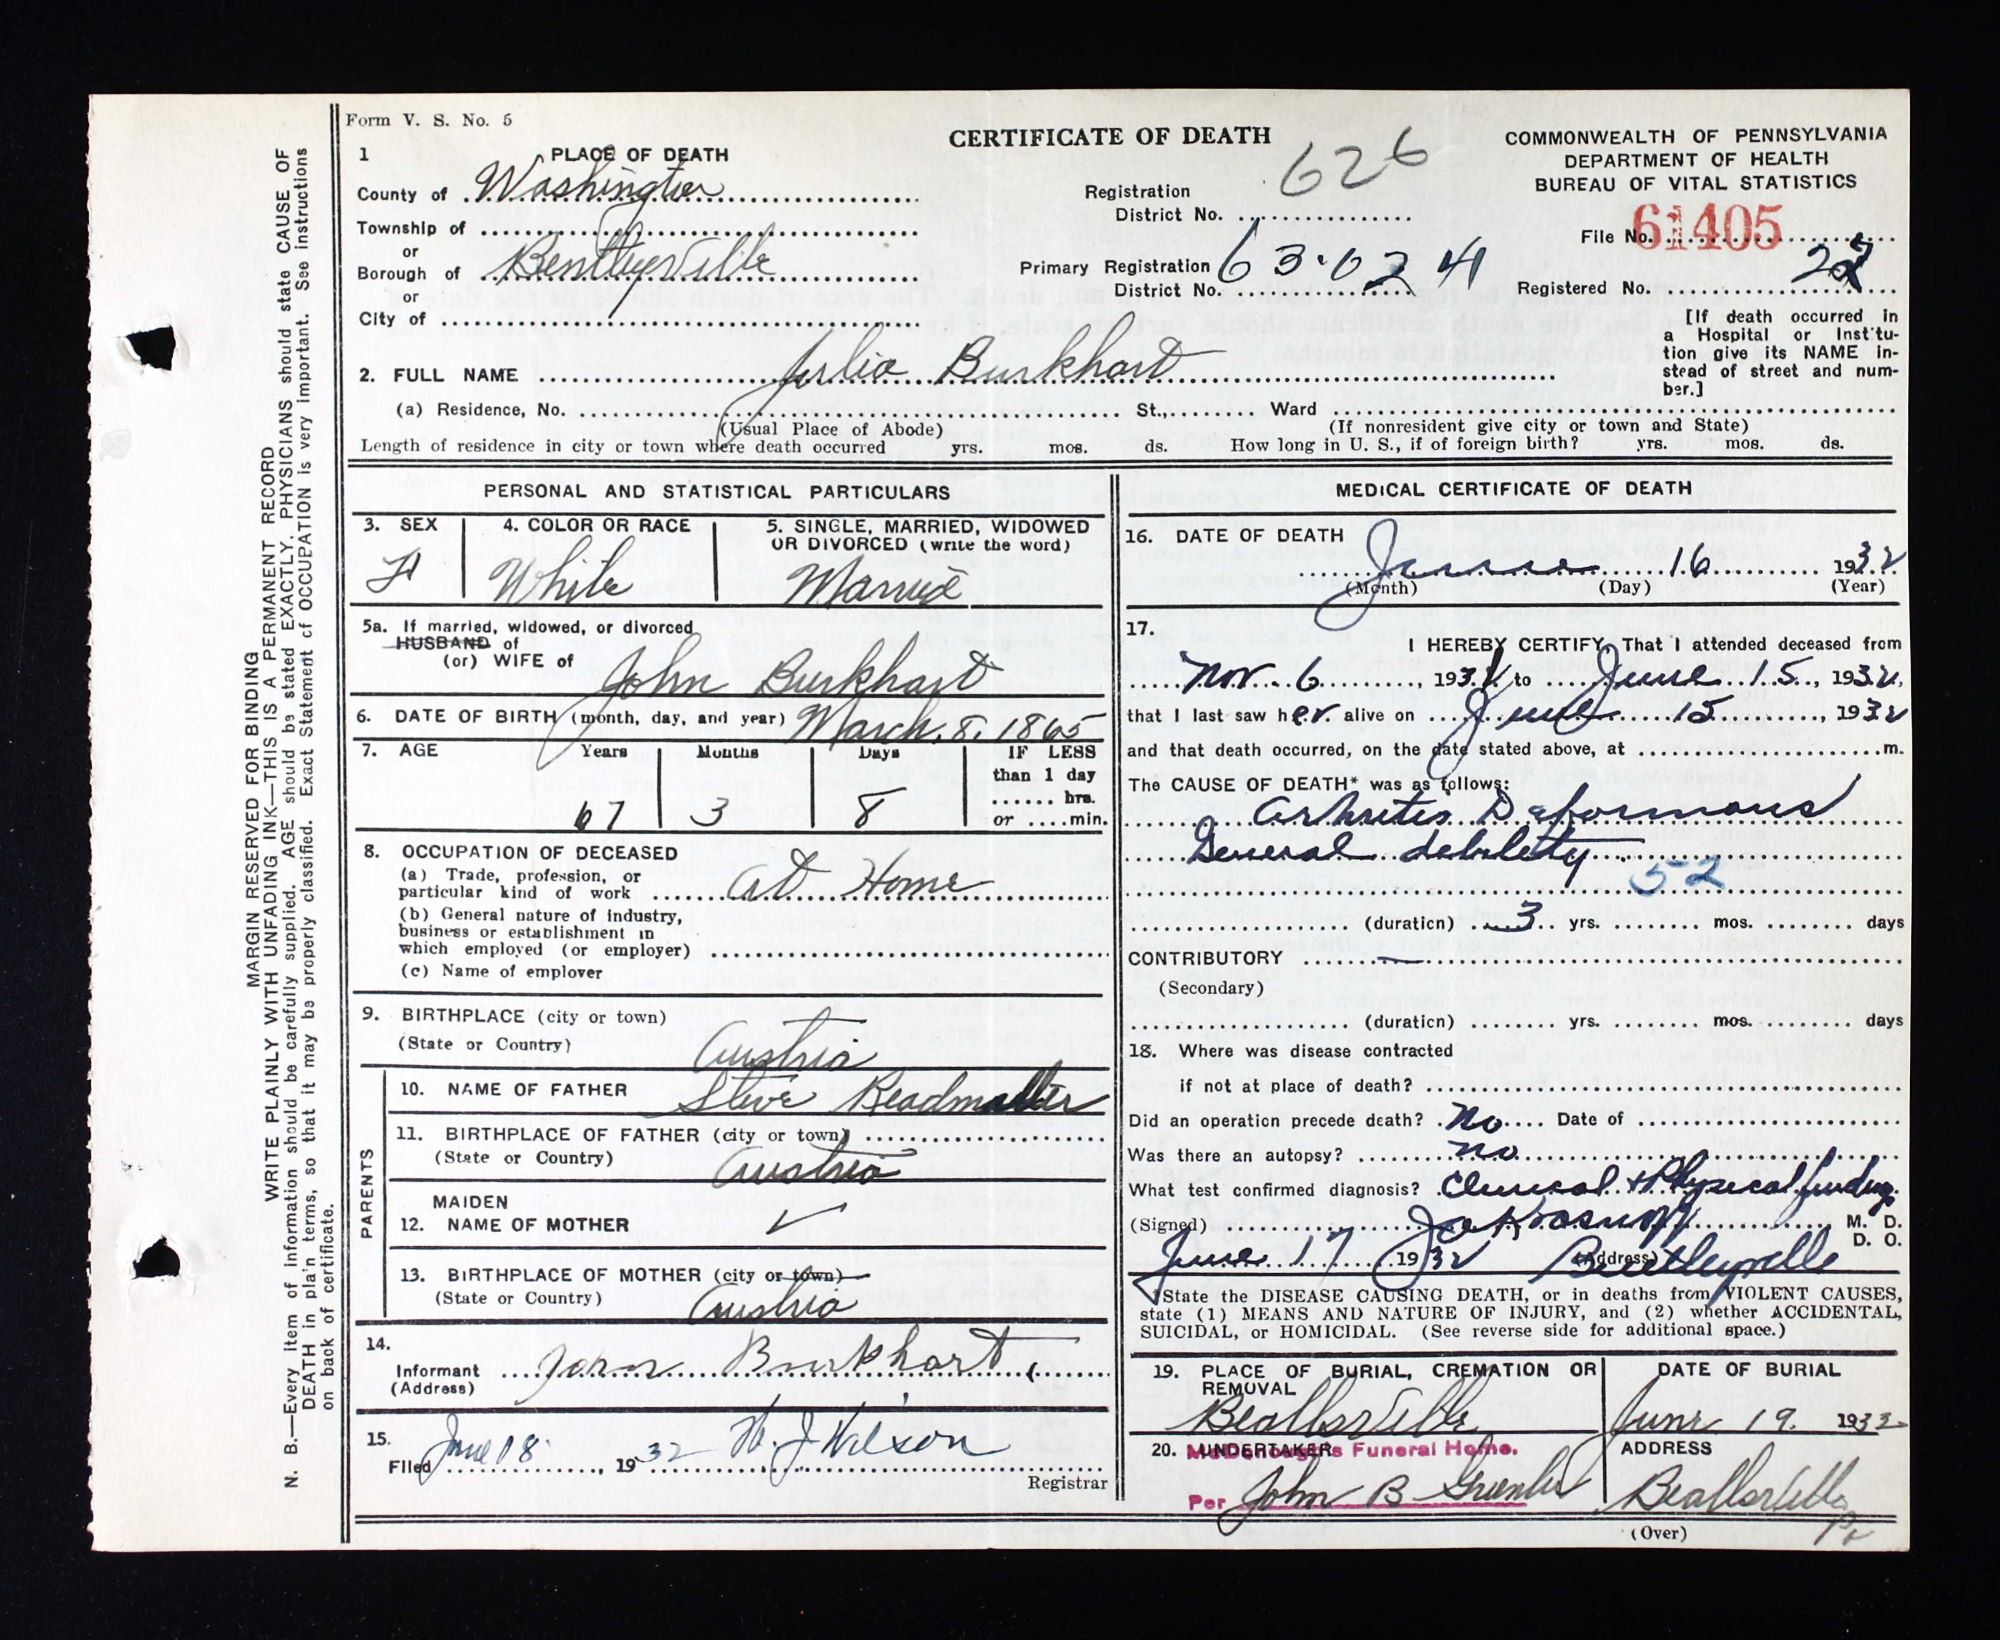 Form V. S. No. 5
CERTIFICATE OF DEATH
COMMONWEALTH OF PENNSYLVANIA
DEPARTMENT OF HEALTH
BUREAU OF VITAL STATISTICS
1 PLACE OF DEATH
County of Washington
Township of
or
Borough of Bentleyville
or
City of
Registration District No. 626
Primary Registration District No. 63-02-41
File No. 61405
Registered No. 22
[If death occurred in a Hospital or Institution give its NAME instead of street and number.]
2. FULL NAME Julia Burkhart
(a) Residence, No. St., Ward
(Usual Place of Abode) (If nonresident give city or town and State)
Length of residence in city or town where death occurred yrs. mos. ds. How long in U. S., if of foreign birth? yrs. mos. ds.
PERSONAL AND STATISTICAL PARTICULARS
3. SEX F
4. COLOR OR RACE White
5. SINGLE, MARRIED, WIDOWED OR DIVORCED (write the word) Married
5a. If married, widowed, or divorced
HUSBAND of
(or) WIFE of John Burkhart
6. DATE OF BIRTH (month, day, and year) March. 8. 1865
7. AGE Years Months Days IF LESS than 1 day
67 3 8 hrs. or min.
8. OCCUPATION OF DECEASED
(a) Trade, profession, or particular kind of work At Home
(b) General nature of industry, business or establishment in which employed (or employer)
(c) Name of employer
9. BIRTHPLACE (city or town)
(State or Country) Austria
PARENTS
10. NAME OF FATHER Steve
11. BIRTHPLACE OF FATHER (city or town)
(State or Country) Austria
12. MAIDEN NAME OF MOTHER ✓
13. BIRTHPLACE OF MOTHER (city or town)
(State or Country) Austria
14. Informant John Burkhart
(Address)
15. Filed June 18 1932 Registrar
MEDICAL CERTIFICATE OF DEATH
16. DATE OF DEATH June 16 1932
(Month) (Day) (Year)
17. I HEREBY CERTIFY, That I attended deceased from
Nov. 6, 1931 to June 15, 1932,
that I last saw her alive on June 15, 1932
and that death occurred, on the date stated above, at m.
The CAUSE OF DEATH* was as follows:
Arthritis Deformans
General debility
52
(duration) 3 yrs. mos. days
CONTRIBUTORY —
(Secondary)
(duration) yrs. mos. days
18. Where was disease contracted
if not at place of death?
Did an operation precede death? No Date of
Was there an autopsy? no
What test confirmed diagnosis? Clinical + Physical findings
(Signed) M. D. D. O.
June 17 1932 (Address) Bentleyville
*State the DISEASE CAUSING DEATH, or in deaths from VIOLENT CAUSES,
state (1) MEANS AND NATURE OF INJURY, and (2) whether ACCIDENTAL,
SUICIDAL, or HOMICIDAL. (See reverse side for additional space.)
19. PLACE OF BURIAL, CREMATION OR REMOVAL Beallsville
DATE OF BURIAL June 19. 1932
20. UNDERTAKER Funeral Home.
Per John B
ADDRESS Beallsville Pa
(Over)
MARGIN RESERVED FOR BINDING
WRITE PLAINLY WITH UNFADING INK—THIS IS A PERMANENT RECORD
N. B.—Every item of information should be carefully supplied. AGE should be stated EXACTLY. PHYSICIANS should state CAUSE OF
DEATH in plain terms, so that it may be properly classified. Exact Statement of OCCUPATION is very important. See instructions
on back of certificate.